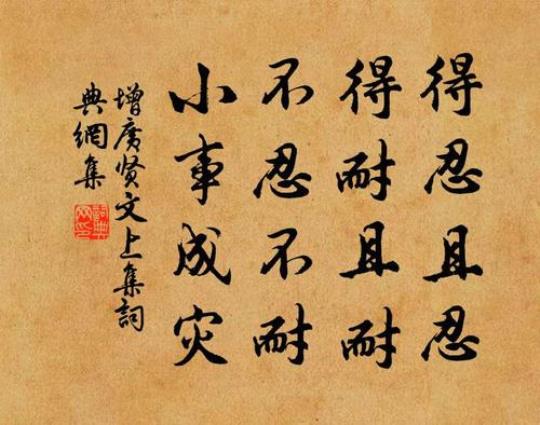 得忍且忍
得耐且耐
不忍不耐
小事成灾
增广贤文上集詞
典網集
詞典网印